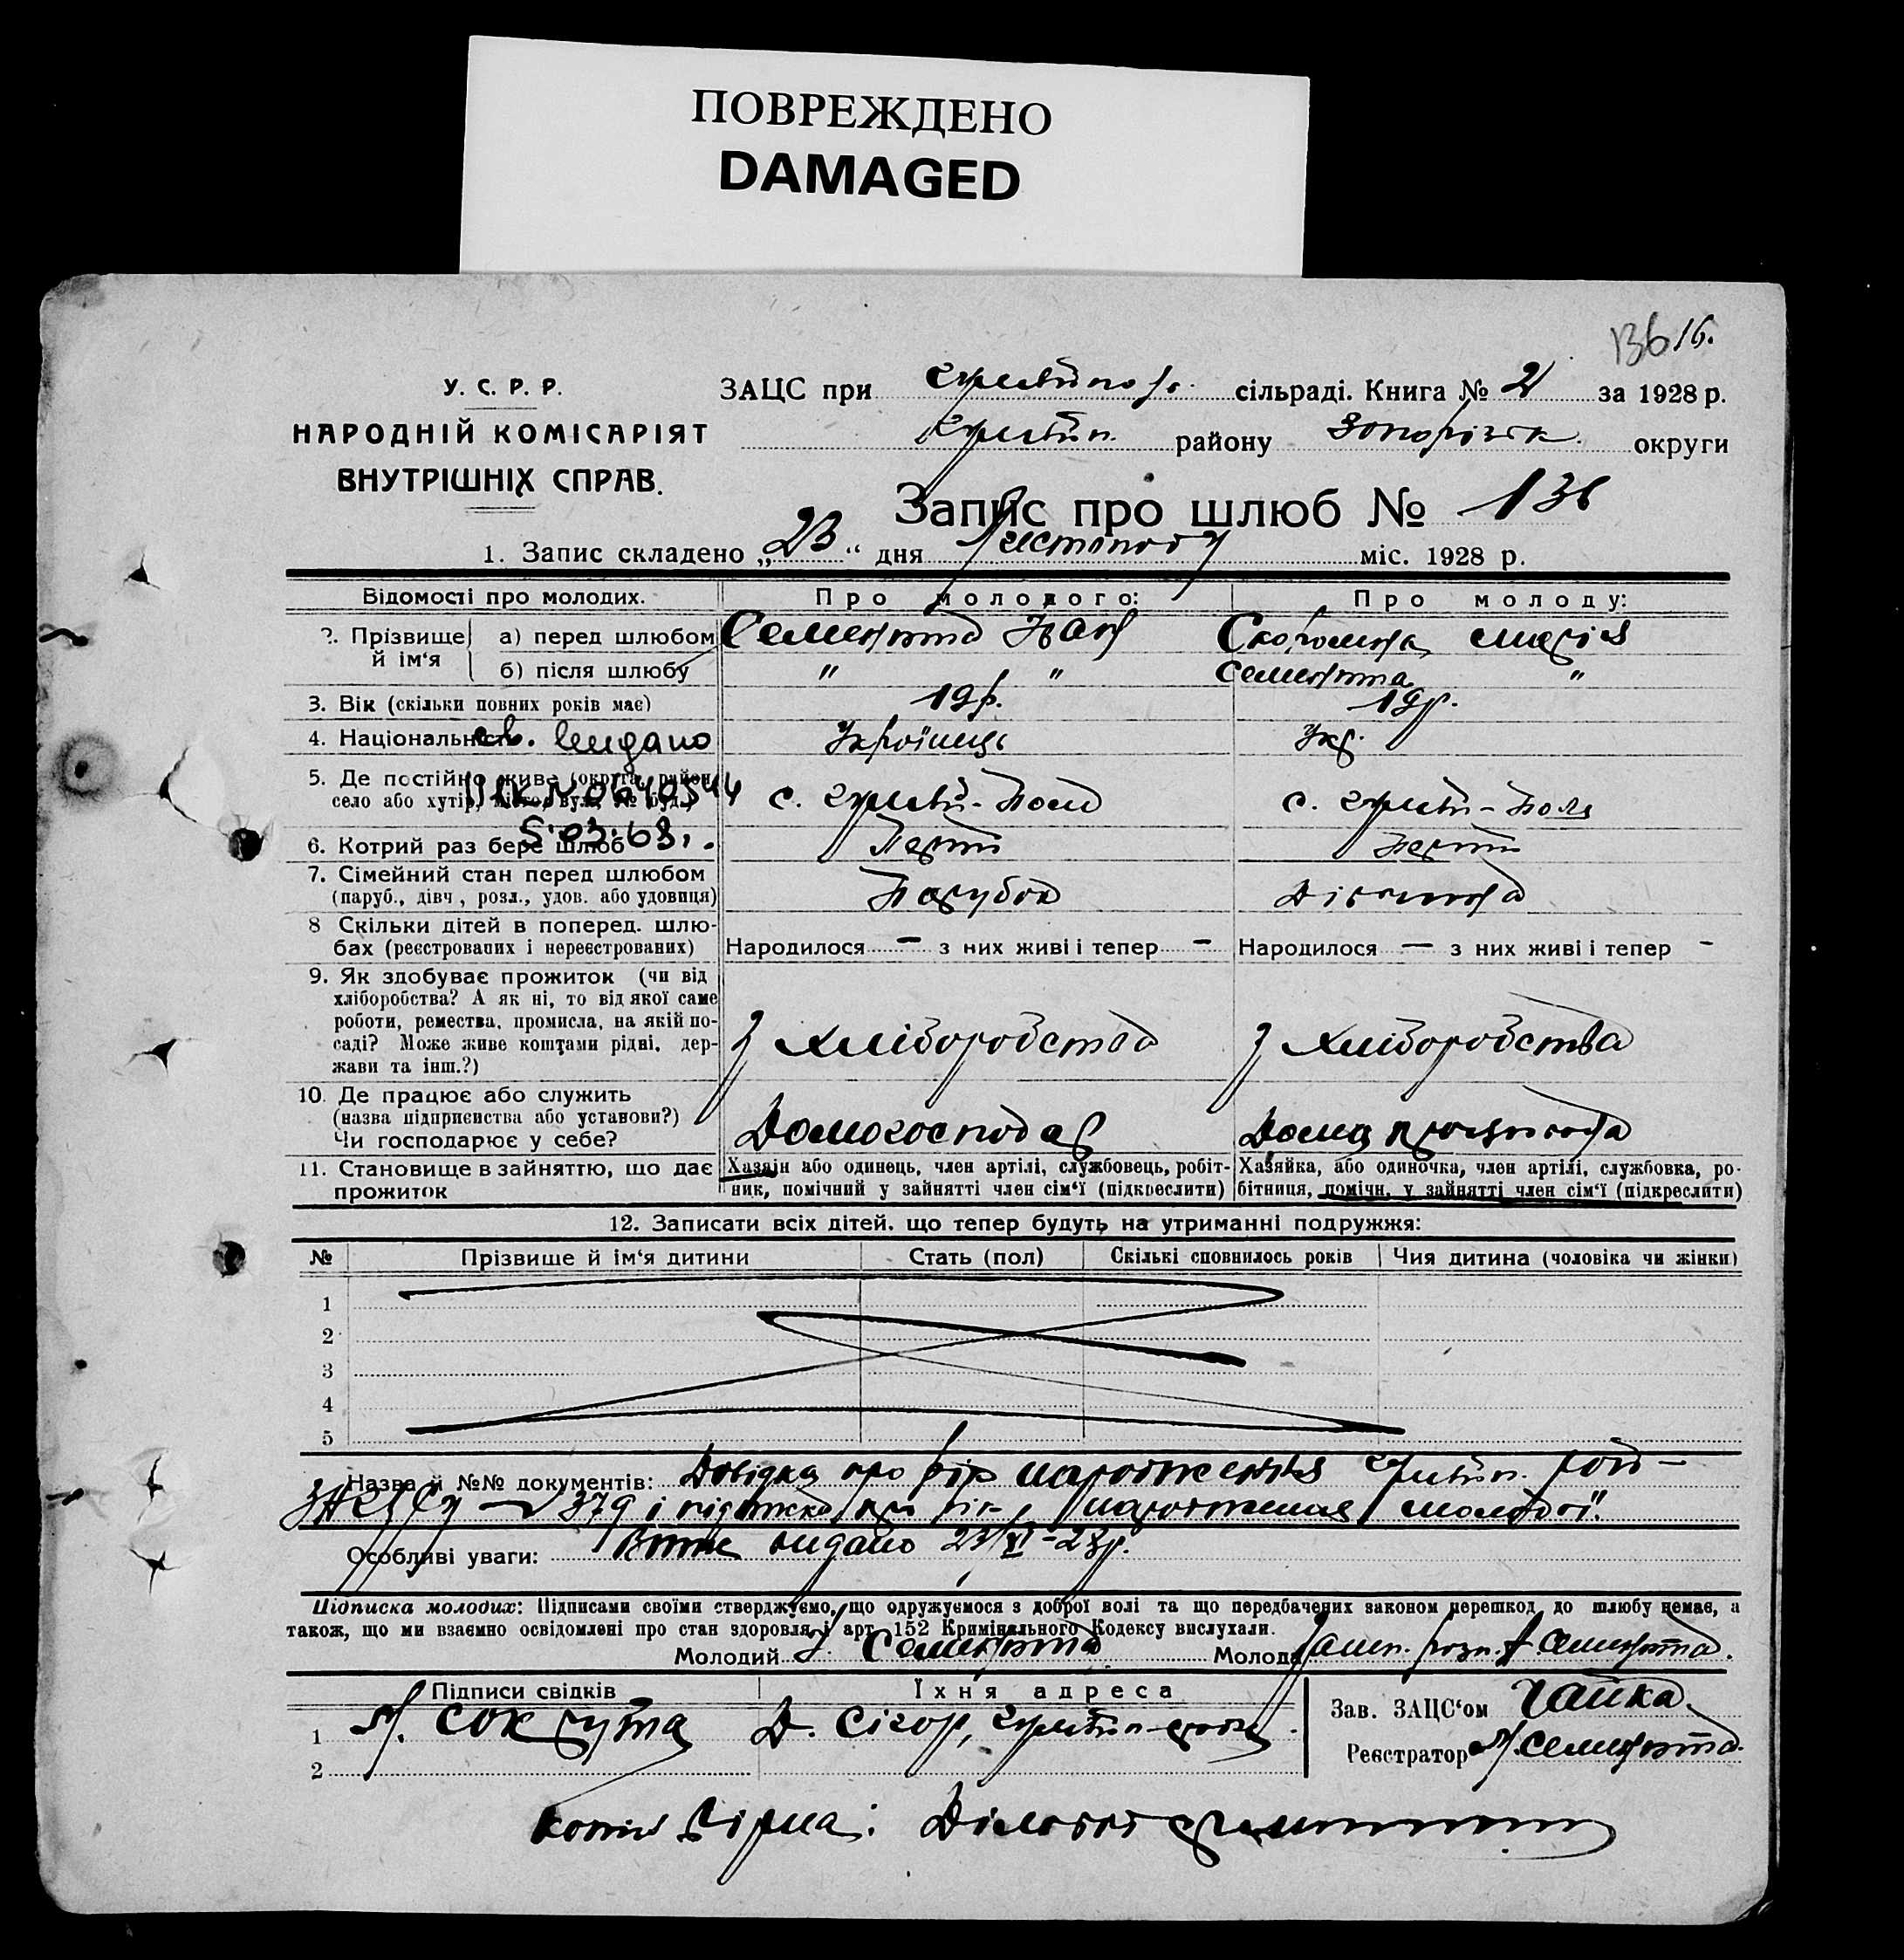 ПОВРЕЖДЕНО
DAMAGED
136 16.
У. С. Р. Р.
НАРОДНІЙ КОМІСАРІЯТ
ВНУТРІШНІХ СПРАВ.
ЗАЦС при сільраді. Книга № 2 за 1928 р.
району округи
Запис про шлюб № 136
1. Запис складено „23“ дня Листопаду міс. 1928 р.
Відомості про молодих. Про молодого: Про молоду:
2. Прізвище й ім‘я а) перед шлюбом Семенюта Іван Марія
б) після шлюбу " " Семенюта "
3. Вік (скільки повних років має) 19 р. 19 р.
4. Національність Українець Укр.
св. видано
5. Де постійно живе (округа, район, село або хутір, місто, вул., № буд.) с. Гуляй-Поле с. Гуляй-Поле
№ 0640544
5.03.68.
6. Котрий раз бере шлюб Перший Перший
7. Сімейний стан перед шлюбом (паруб., дівч., розл., удов. або удовиця) Парубок Дівчина
8 Скільки дітей в поперед. шлюбах (реєстрованих і нереєстрованих) Народилося — з них живі і тепер — Народилося — з них живі і тепер -
9. Як здобуває прожиток (чи від хліборобства? А як ні, то від якої саме роботи, ремества, промисла, на якій посаді? Може живе коштами рідні, держави та інш.?) З хліборобства З хліборобства
10. Де працює або служить (назва підприємства або установи?) Чи господарює у себе? Домогосподар
11. Становище в зайняттю, що дає прожиток
Хазяїн або одинець, член артілі, службовець, робітник, помічний у зайнятті член сім‘ї (підкреслити)
Хазяйка, або одиночка, член артілі, службовка, робітниця, помічн. у зайнятті член сім‘ї (підкреслити)
12. Записати всіх дітей, що тепер будуть на утриманні подружжя:
№ Прізвище й ім‘я дитини Стать (пол) Скількі сповнилось років Чия дитина (чоловіка чи жінки)
1
2
3
4
5
Назва й №№ документів: Довідка про рік народження
№ 379 і про рік народження молодої.
Особливі уваги: видано 23/XI-28р.
Підписка молодих: Підписами своїми стверджуємо, що одружуємося з доброї волі та що передбачених законом перешкод до шлюбу немає, а
також, що ми взаємно освідомлені про стан здоровля і арт. 152 Кримінального Кодексу вислухали.
Молодий І. Семенюта Молода Семенюта.
Підписи свідків Їхня адреса Зав. ЗАЦС‘ом Чайка
1
2
Реєстратор Семенюта
Копія вірна: Діловод